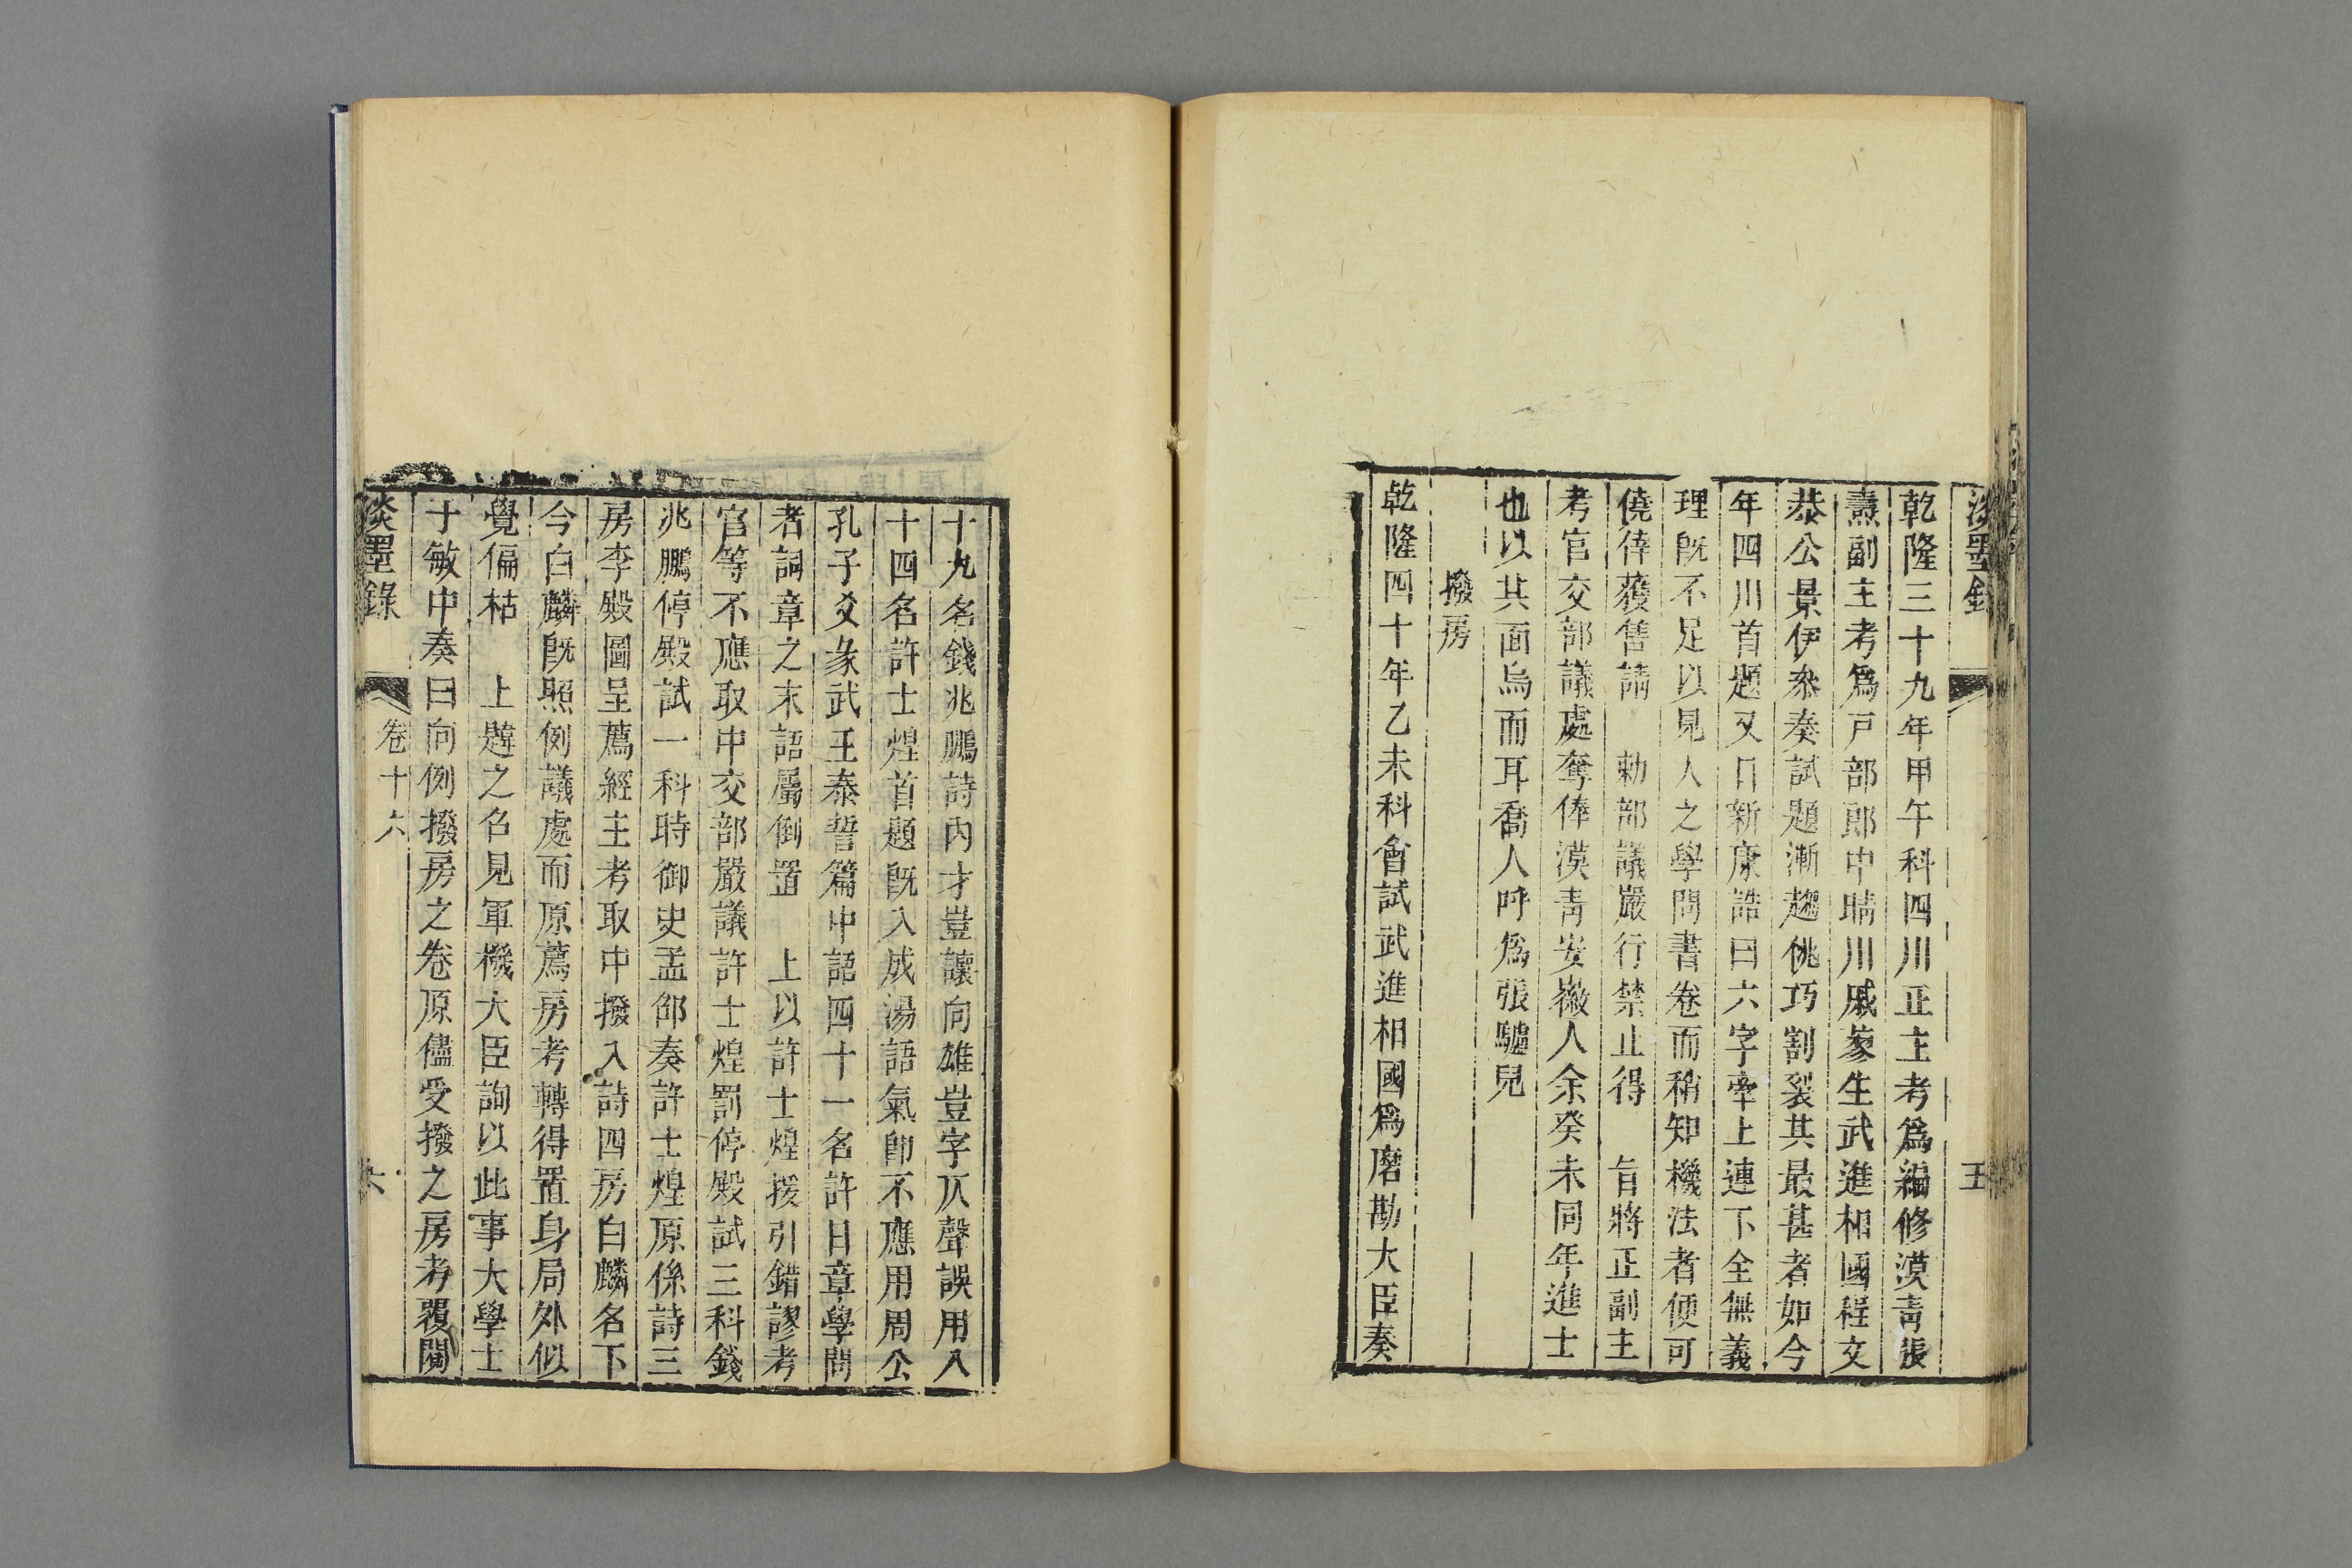 淡墨錄
五
乾隆三十九年甲午科四川正主考爲編修漠靑張
燾副主考爲戸部郎中晴川戚蓼生武進相國程文
恭公景伊叅奏試題漸趨佻巧割裂其最甚者如今
年四川首題又日新康誥曰六字牽上連下全無義
理旣不足以見人之學問書卷而稍知機法者便可
僥倖獲售請　勅部議嚴行禁止得　旨將正副主
考官交部議處奪俸漠靑安嶶人余癸未同年進士
也以其面烏而耳喬人呼爲張驢兒
撥房
乾隆四十年乙未科會試武進相國爲磨勘大臣奏
十九名錢兆鵬詩內才豈讓向雄豈字仄聲誤用入
十四名許士煌首題旣入成湯語氣卽不應用周公
孔子爻彖武王泰誓篇中語四十一名許日章學問
者詞章之末語屬倒置　上以許士煌援引錯謬考
官等不應取中交部嚴議許士煌罰停殿試三科錢
兆鵬停殿試一科時御史孟邵奏許士煌原係詩三
房李殿圖呈薦經主考取中撥入詩四房白麟名下
今白麟旣照例議處而原薦房考轉得置身局外似
覺偏枯　上韙之召見軍機大臣詢以此事大學士
于敏中奏曰向例撥房之卷原儘受撥之房考覆閱
淡墨錄
卷十六
六